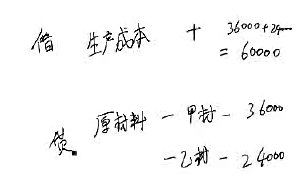 借 生产成本 + 36000+24000
= 60000
贷 原材料 - 甲材 - 36000
- 乙材 - 24000